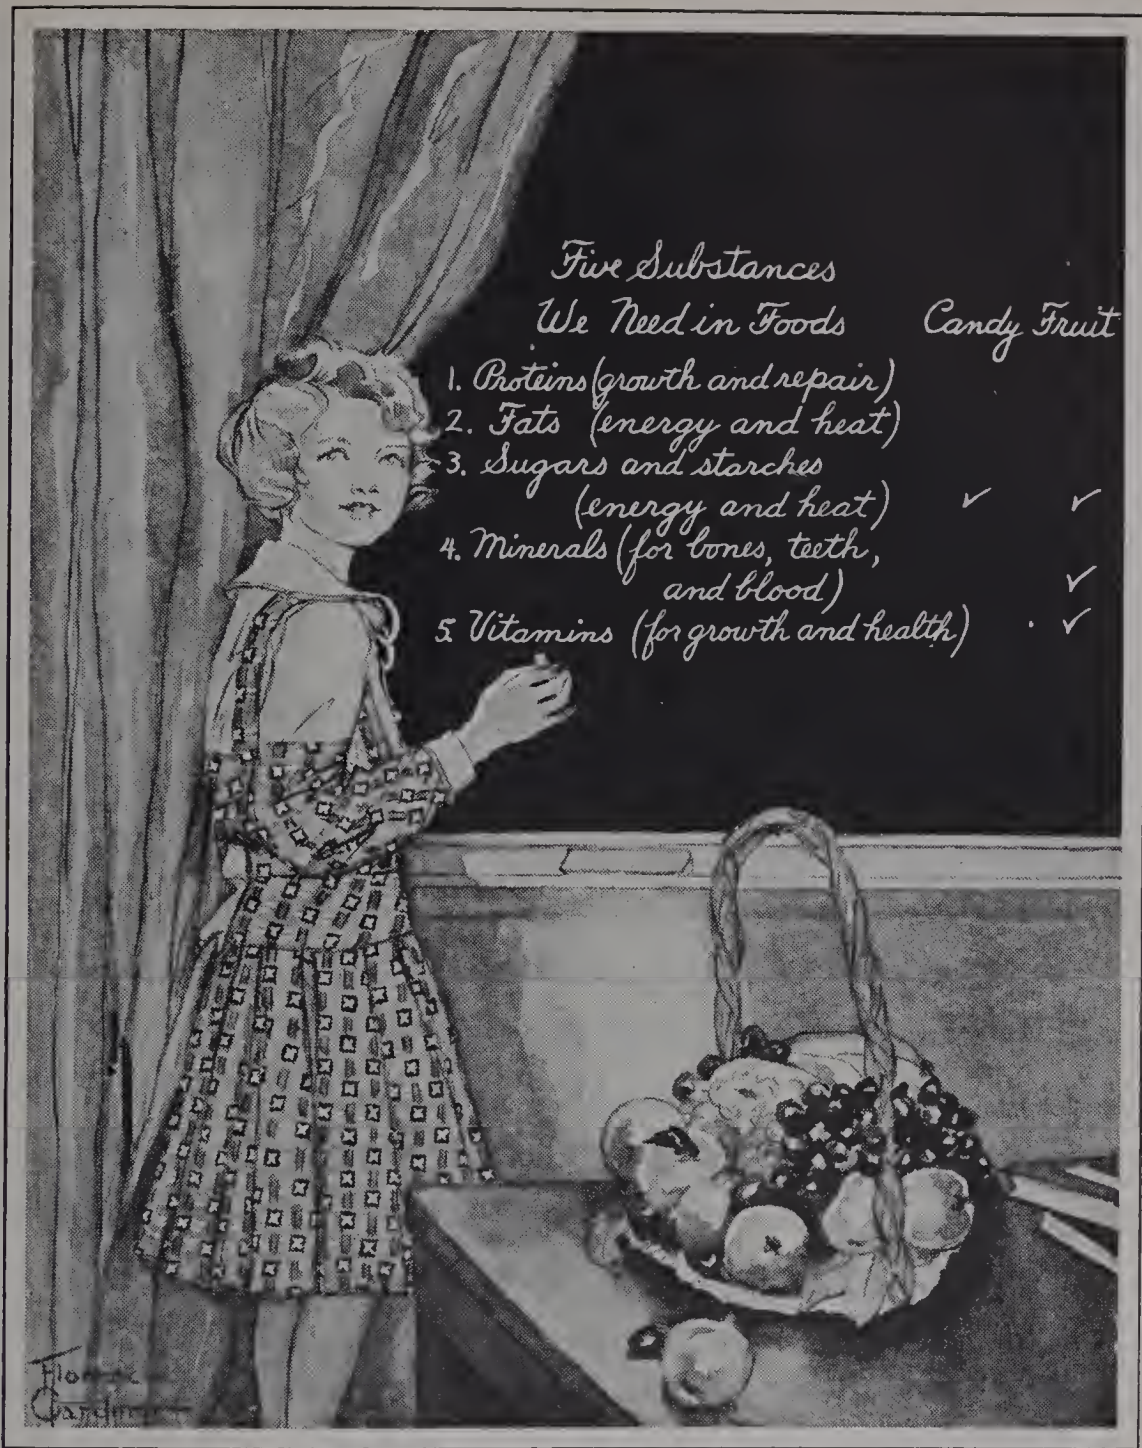 Five Substances
We Need in Foods Candy Fruit
1. Proteins (growth and repair)
2. Fats (energy and heat)
3. Sugars and starches
(energy and heat) ✓ ✓
4. Minerals (for bones, teeth,
and blood) ✓
5. Vitamins (for growth and health) ✓